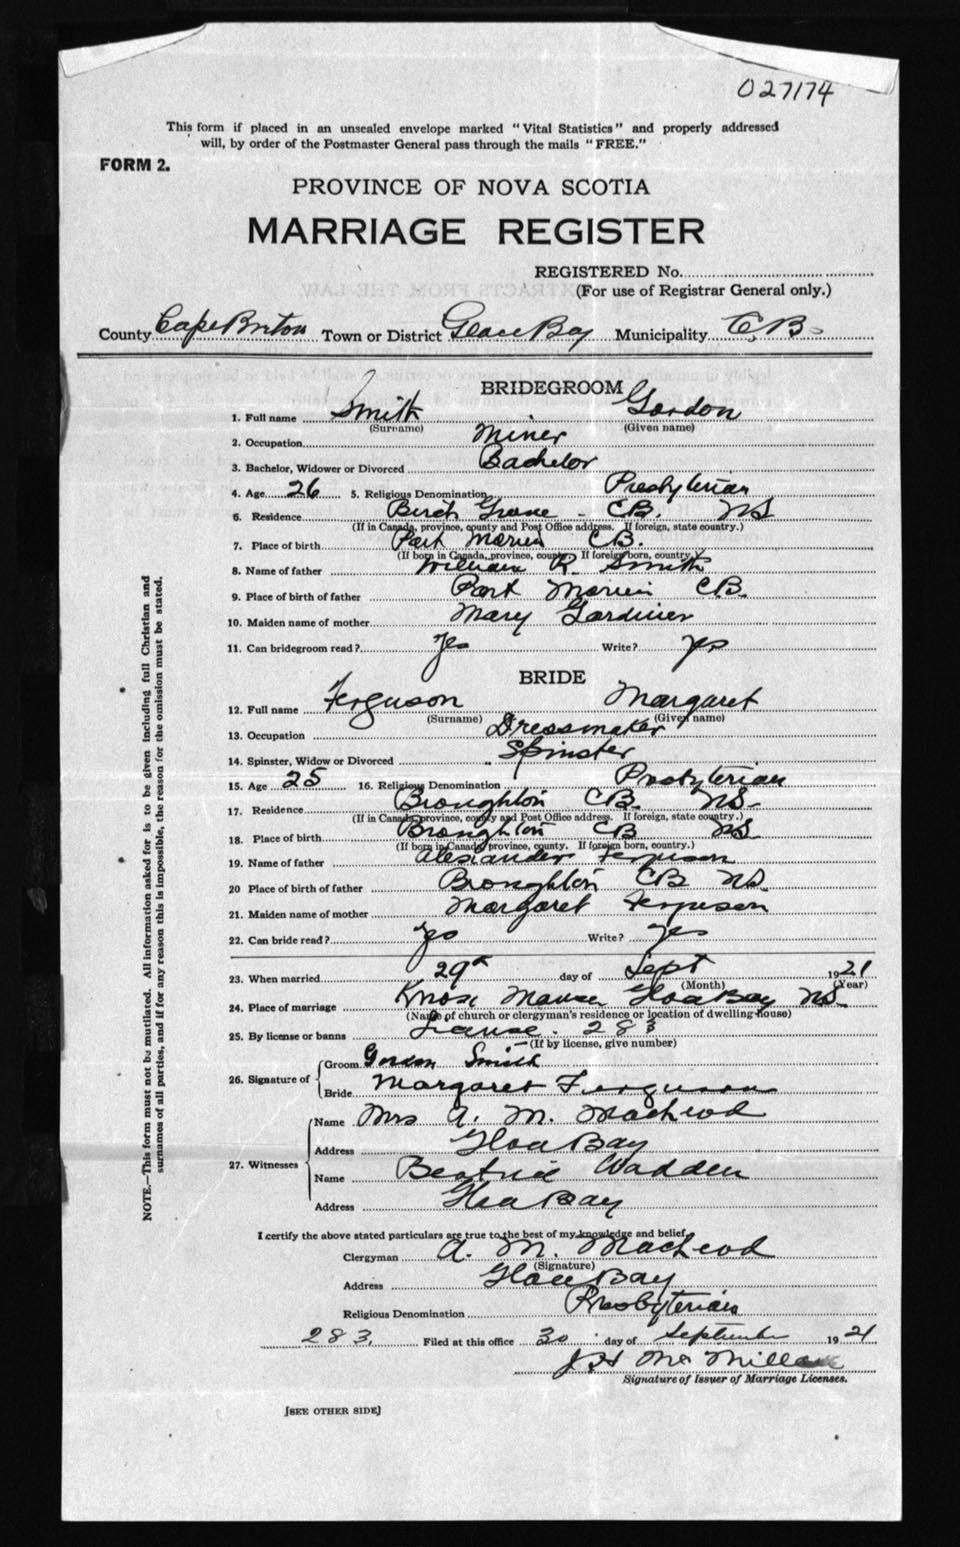 027174
This form if placed in an unsealed envelope marked "Vital Statistics" and properly addressed
will, by order of the Postmaster General pass through the mails "FREE."
FORM 2.
PROVINCE OF NOVA SCOTIA
MARRIAGE REGISTER
REGISTERED No.
(For use of Registrar General only.)
County Cape Breton Town or District Glace Bay Municipality C B
BRIDEGROOM
1. Full name Smith Gordon
(Surname) (Given name)
2. Occupation Miner
3. Bachelor, Widower or Divorced Bachelor
4. Age 26 5. Religious Denomination Presbyterian
6. Residence Birch Grove C.B. NS
(If in Canada, province, county and Post Office address. If foreign, state country.)
7. Place of birth Port Morien C.B.
(If born in Canada, province, county. If foreign born, country.)
8. Name of father William R. Smith
9. Place of birth of father Port Morien CB.
10. Maiden name of mother Mary Gardiner
11. Can bridegroom read? Yes Write? Yes
BRIDE
12. Full name Ferguson Margaret
(Surname) (Given name)
13. Occupation Dressmaker
14. Spinster, Widow or Divorced Spinster
15. Age 25 16. Religious Denomination Presbyterian
17. Residence Broughton CB. NS.
(If in Canada, province, county and Post Office address. If foreign, state country.)
18. Place of birth Broughton CB NS
(If born in Canada, province, county. If foreign born, country.)
19. Name of father Alexander Ferguson
20 Place of birth of father Broughton CB NS.
21. Maiden name of mother Margaret Ferguson
22. Can bride read? Yes Write? Yes
23. When married 29th day of Sept 1921
(Month) (Year)
24. Place of marriage Knox Manse Glace Bay NS
(Name of church or clergyman's residence or location of dwelling-house)
25. By license or banns License. 283
(If by license, give number)
26. Signature of
Groom Gordon Smith
Bride Margaret Ferguson
27. Witnesses
Name Mrs A. M. MacLeod
Address Glace Bay
Name Beatrice Wadden
Address Glace Bay
I certify the above stated particulars are true to the best of my knowledge and belief.
Clergyman A. M. MacLeod
(Signature)
Address Glace Bay
Religious Denomination Presbyterian
283. Filed at this office 30 day of September 1921
J H McMillan
Signature of Issuer of Marriage Licenses.
[SEE OTHER SIDE]
NOTE.—This form must not be mutilated. All information asked for is to be given including full Christian and
surnames of all parties, and if for any reason this is impossible, the reason for the omission must be stated.